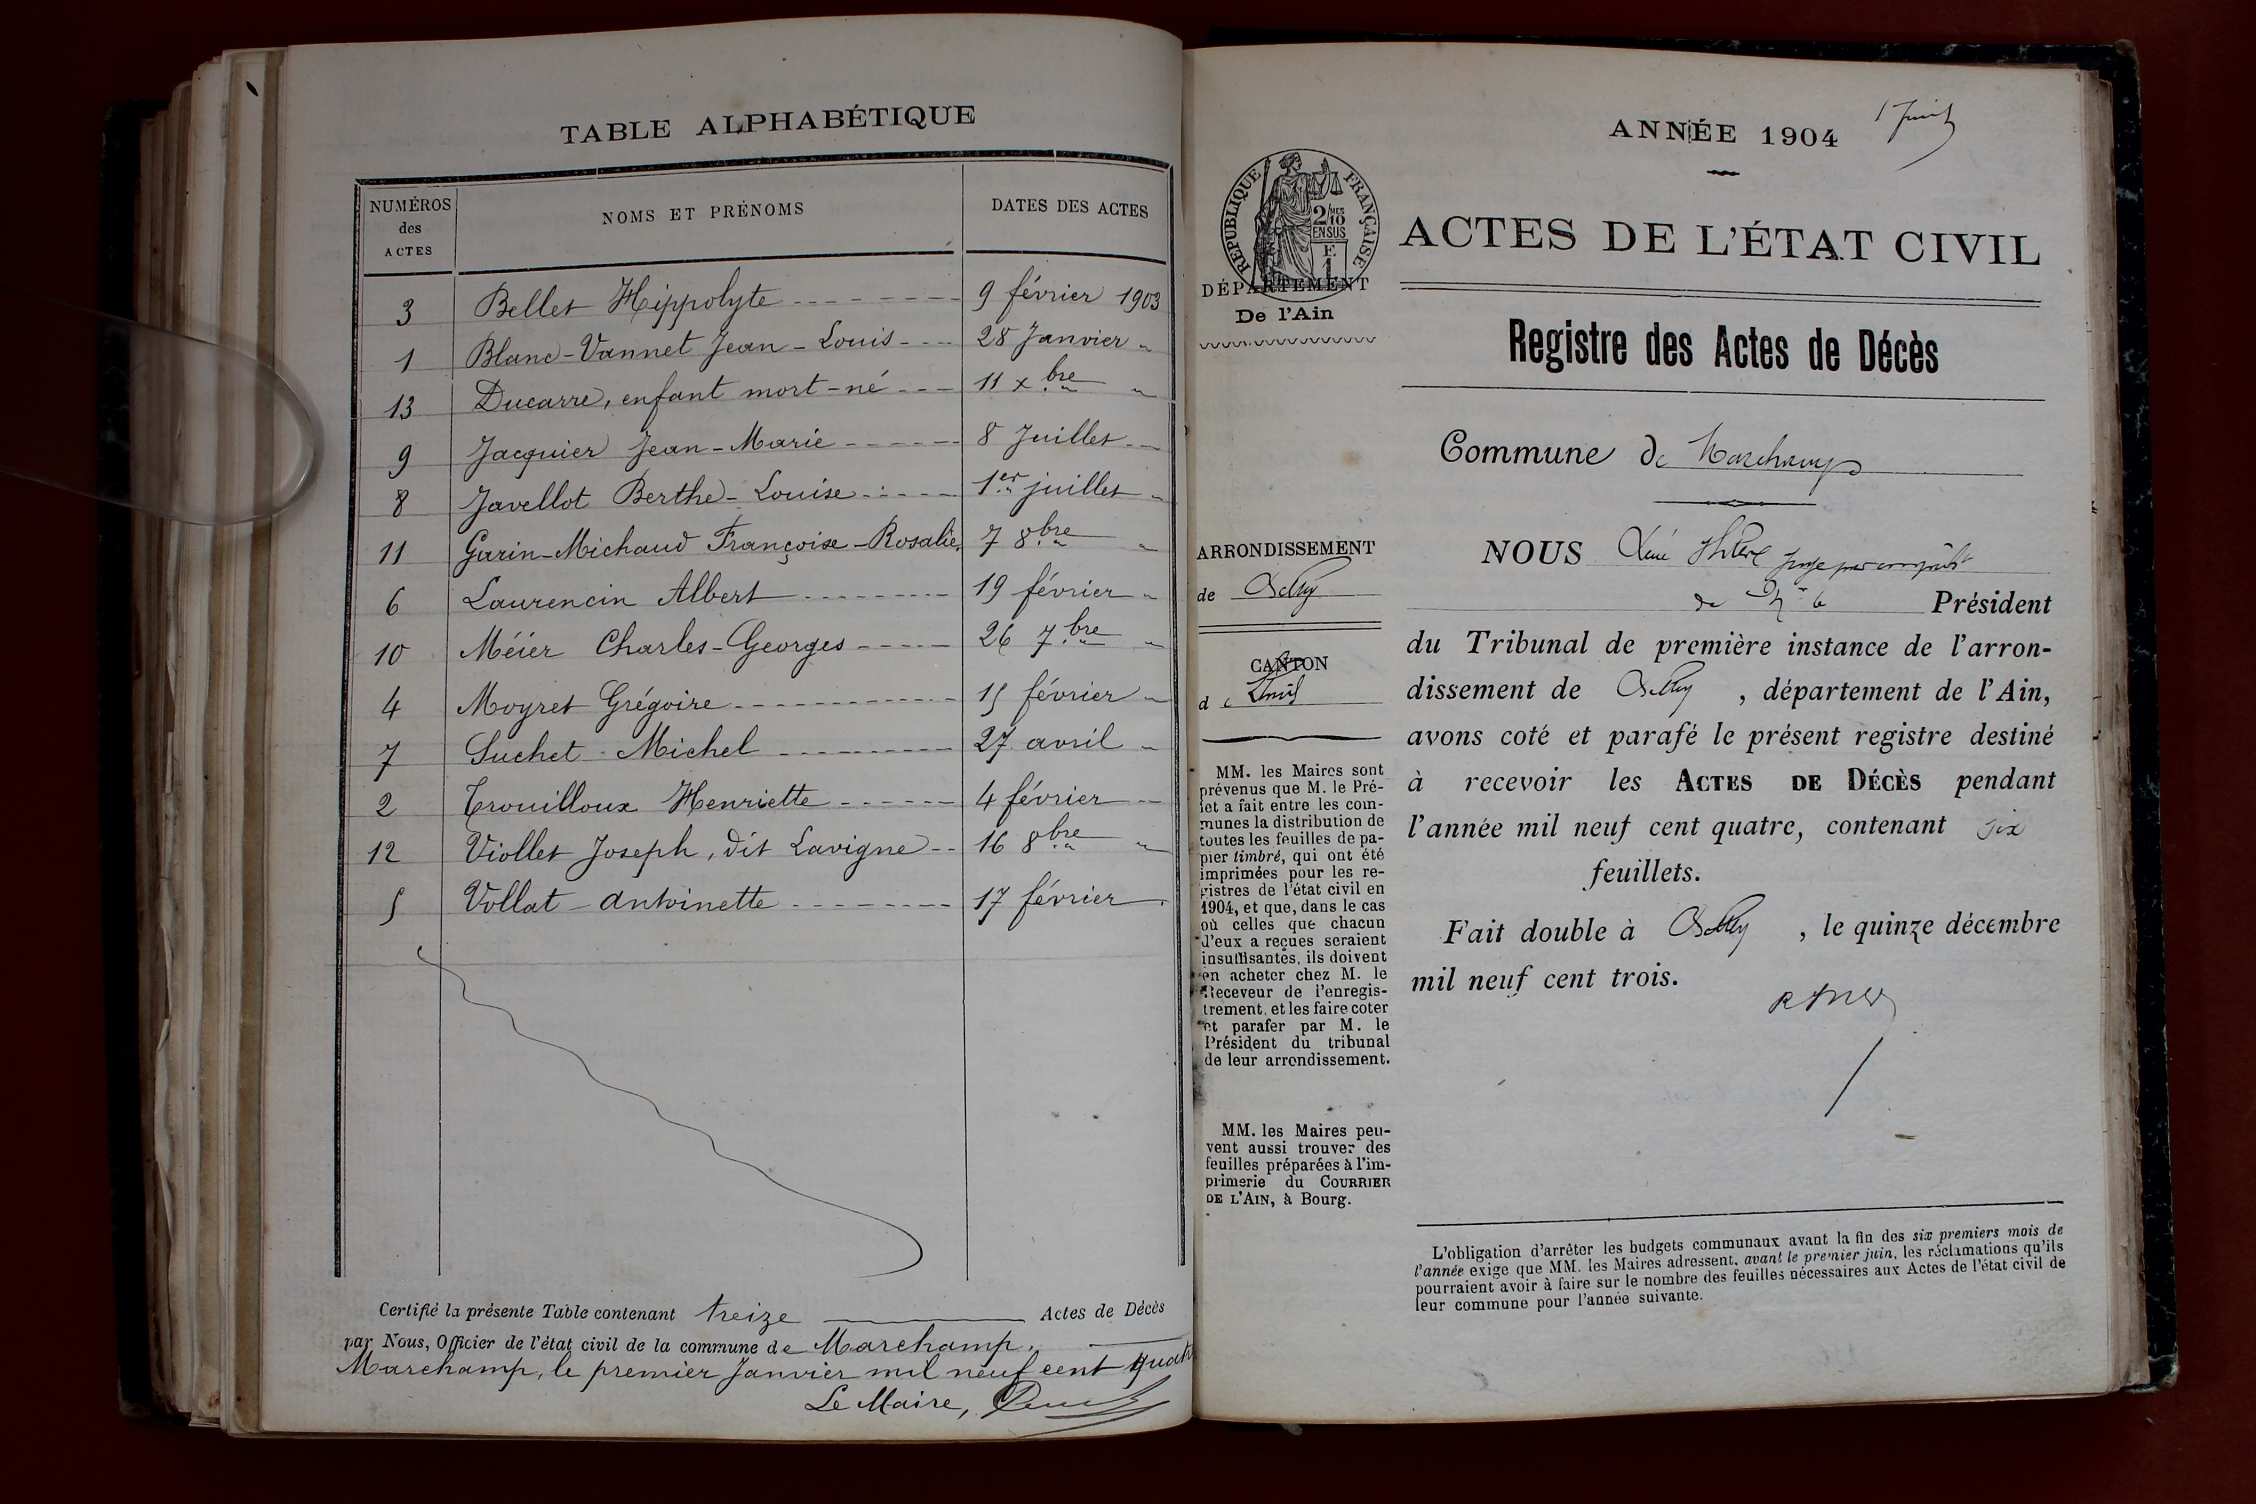 TABLE ALPHABÉTIQUE
NUMÉROS des ACTES NOMS ET PRÉNOMS DATES DES ACTES
3 Bellet Hippolyte 9 février 1903
1 Blanc-Vannet Jean-Louis 28 Janvier "
13 Ducarre, enfant mort-né 11 xbre "
9 Jacquier Jean-Marie 8 Juillet
8 Javellot Berthe-Louise 1er juillet "
11 Gurin-Michaud Françoise-Rosalie, 7 8bre "
6 Laurencin Albert 19 février "
10 Méier Charles-Georges 26 7bre "
4 Moyret Grégoire 15 février "
7 Suchet Michel 27 avril "
2 Trouilloux Henriette 4 février
12 Viollet Joseph, dit Lavigne 16 8bre "
5 Vollat Antoinette 17 février
Certifié la présente Table contenant treize Actes de Décès
par Nous, Officier de l'état civil de la commune de Marchamp.
Marchamp, le premier Janvier mil neuf cent quatre
Le Maire,
ANNÉE 1904
RÉPUBLIQUE FRANÇAISE
2/10MES
EN SUS
E
1
ACTES DE L'ÉTAT CIVIL
DÉPARTEMENT
De l'Ain
Registre des Actes de Décès
Commune de Marchamp
ARRONDISSEMENT
de Belley
CANTON
de
MM. les Maires sont
prévenus que M. le Pré-
fet a fait entre les com-
munes la distribution de
toutes les feuilles de pa-
pier timbré, qui ont été
imprimées pour les re-
gistres de l'état civil en
1904, et que, dans le cas
où celles que chacun
d'eux a reçues seraient
insuffisantes, ils doivent
en acheter chez M. le
Receveur de l'enregis-
trement, et les faire coter
et parafer par M. le
Président du tribunal
de leur arrondissement.
MM. les Maires peu-
vent aussi trouver des
feuilles préparées à l'im-
primerie du COURRIER
DE L'AIN, à Bourg.
NOUS
Président
du Tribunal de première instance de l'arron-
dissement de Belley, département de l'Ain,
avons coté et parafé le présent registre destiné
à recevoir les ACTES DE DÉCÈS pendant
l'année mil neuf cent quatre, contenant six
feuillets.
Fait double à Belley, le quinze décembre
mil neuf cent trois.
L'obligation d'arrêter les budgets communaux avant la fin des six premiers mois de
l'année exige que MM. les Maires adressent, avant le premier juin, les réclamations qu'ils
pourraient avoir à faire sur le nombre des feuilles nécessaires aux Actes de l'état civil de
leur commune pour l'année suivante.